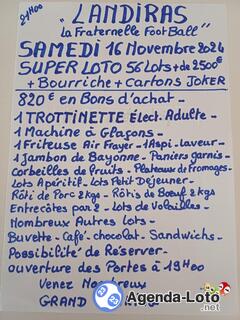 21H00
"LANDIRAS
La Fraternelle FootBall"
SAMEDI 16 Novembre 2024
SUPER LOTO 56 Lots + de 2500€
+ Bourriche + Cartons JOKER
820€ en Bons d'achat -
1 TROTTINETTE Élect. Adulte -
1 Machine à Glaçons -
1 Friteuse Air Frayer - 1 Aspi. Laveur -
1 Jambon de Bayonne - Paniers garnis -
Corbeilles de fruits - Plateaux de Fromages -
Lots Apéritif - Lots Petit Déjeuner -
Rôti de Porc 2kgs - Rôtis de Bœuf 2 kgs
Entrecôtes par 2 - Lots de Volailles -
Nombreux Autres Lots -
Buvette - Café - chocolat - Sandwichs -
Possibilité de Réserver -
ouverture des Portes à 19H00
Venez Nombreux
GRAND
Agenda-Loto
.net